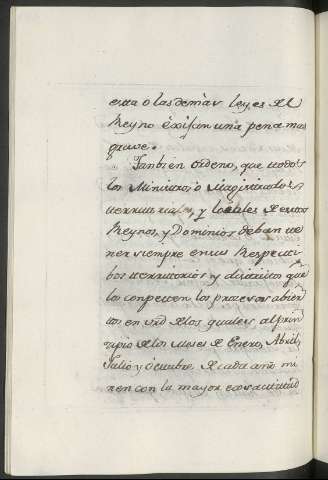 esta o las demàs leyes del
Reyno èxijan una pena mas
grave.
Tanbien ordeno, que todos
los Ministros ò Magistrados
territoriales, y locales de estos
Reynos, y Dominios deban te
ner siempre en sus Respecti
bos territorios y distritos que
les conpeten los procesos abier
tos en vrd de los quales, al prin
cipio de los Meses de Enero, Abril,
Julio y òctubre de cada año mi
ren con la mayor exsactitud